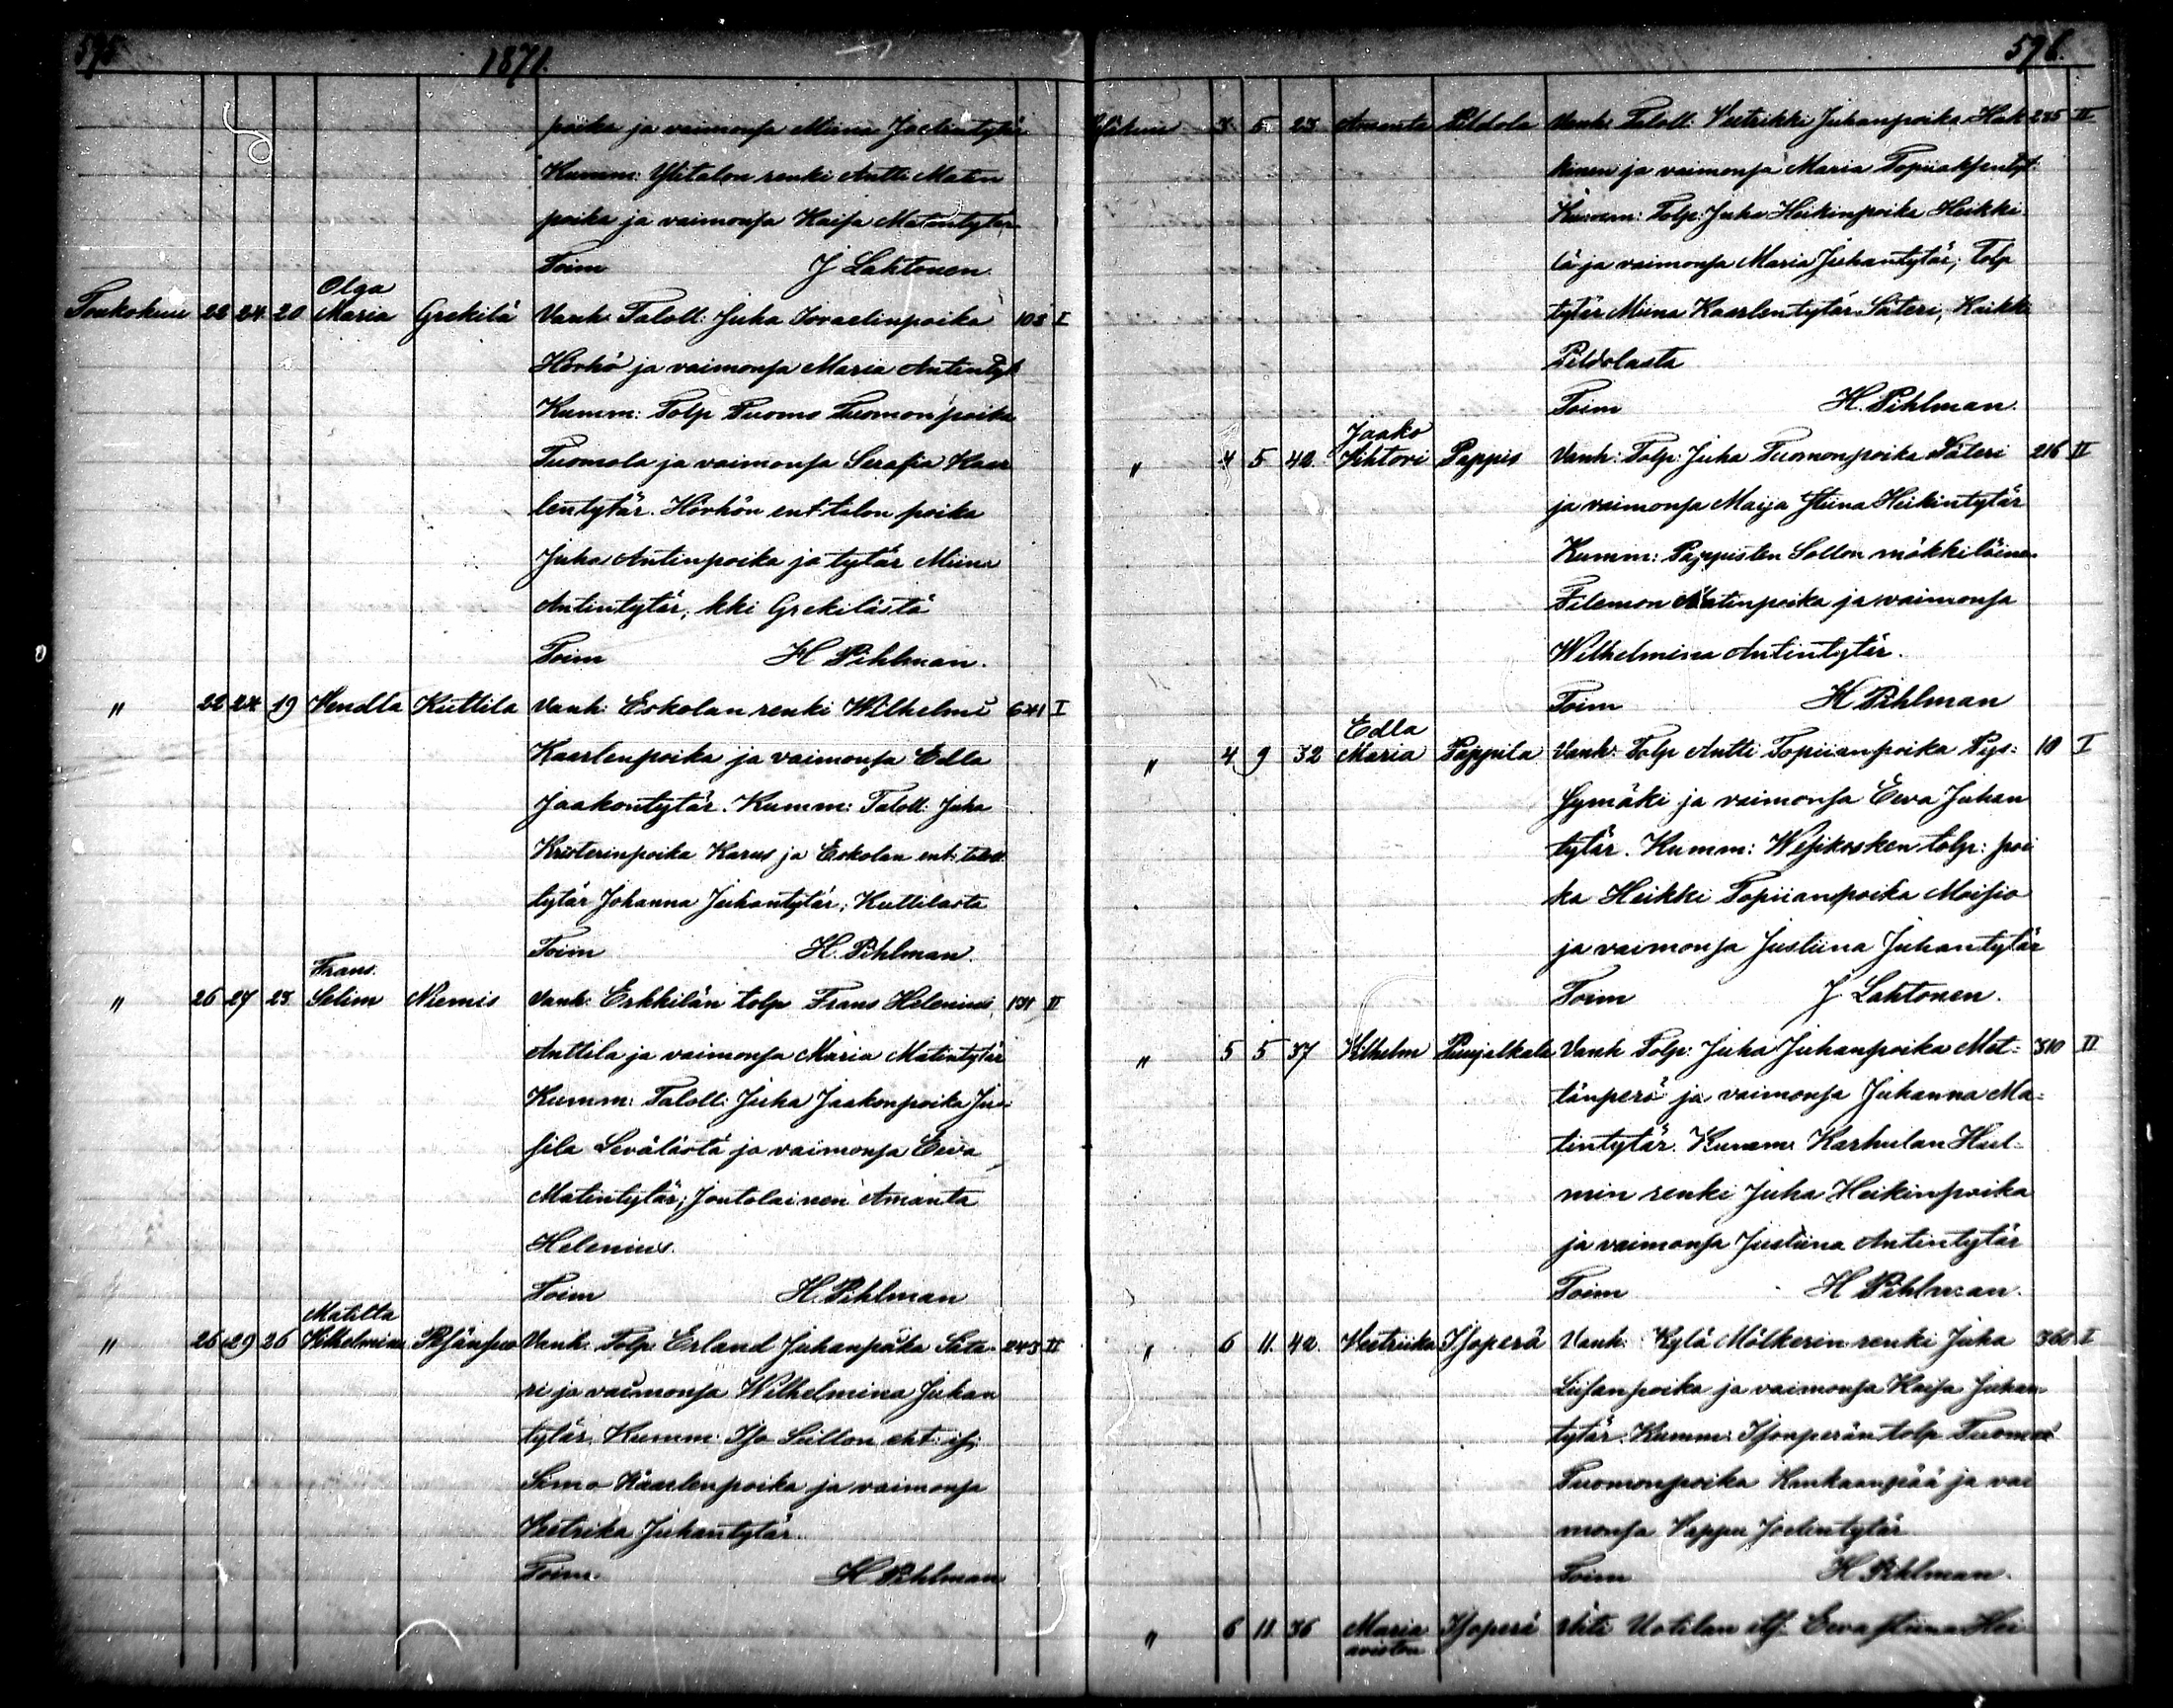 595
1871.
poika ja vaimonsa Miina Joelintytär
Kumm: Ylitalon renki Antti Matin
poika ja vaimonsa Kaisa Matintytär
Toim J Lahtonen
Olga
Toukokuu 22 24 20 Maria Grekilä Vanh: Taloll: Juha Israelinpoika 103 I
Hörhö ja vaimonsa Maria Antintyt
Kumm: Tolp Tuomo Tuomonpoika
Tuomola ja vaimonsa Serafia Kaar
lentytär. Hörhön ent talon poika
Juha Antinpoika ja tytär Miina
Antintytär, kki Grekilästä
Toim H Pihlman.
" 22 24 19 Vendla Kuttila Vanh: Eskolan renki Wilhelmi 641 I
Kaarlenpoika ja vaimonsa Edla
Jaakontytär. Kumm: Taloll: Juha
Kristerinpoika Karus ja Eskolan ent: taloll
tytär Johanna Juhantytär; Kuttilasta
Toim H. Pihlman.
Frans
" 26 27 23 Selim Niemis Vanh: Erkkilän tolp Frans Helenius 131 II
Anttila ja vaimonsa Maria Matintytär
Kumm: Taloll: Juha Jaakonpoika Ju
sila Sevälästä ja vaimonsa Eeva
Matintytär; Joutolainen Amanta
Helenius.
Toim H. Pihlman
Matilta
" 26 29 26 Vilhelmina Vanh: Tolp. Erland Juhanpoika Säte 243 II
ri ja vaimonsa Wilhelmina Juhan
tytär. Kumm: Iso Seillon eht: isj:
Simo Kaarlenpoika ja vaimonsa
Veetrika Juhantytär.
Toim. H Pihlman
596.
Kesäkuu 3 5 23 Amanta Pildola Vanh: Taloll: Veetrikki Juhanpoika Hak 235 II
kinen ja vaimonsa Maria Topiaksentyt:
Kumm: Tolp: Juha Heikinpoika Heikki
lä ja vaimonsa Maria Juhantytär; Tolp
tytär Miina Kaarlentytär Säteri; Kaikki
Pildolasta
Toim H. Pihlman.
Jaako
" 4 5 42. Vihtori Pappis Vanh: Tolp: Juha Tuomonpoika Säteri 216 II
ja vaimonsa Maija Stiina Heikintytär
Kumm: Pappisten Sollon mökkiläinen
Filemon Matinpoika ja vaimonsa
Wilhelmina Antintytär.
Toim H Pihlman
Edla
" 4 9 32 Maria Pappila Vanh: Tolp Antti Topiianpoika Pys: 10 I
symäki ja vaimonsa Eeva Juhan
tytär. Kumm: Wesikosken tolp: poi
ka Heikki Topiianpoika Moisio
ja vaimonsa Justiina Juhantytär
Toim J Lahtonen.
" 5 5 37 Vilhelm Puujalkala Vanh Tolp: Juha Juhanpoika Met: 310 II
tänperä ja vaimonsa Juhanna Ma-
tintytär. Kumm: Karhulan Huil-
min renki Juha Heikinpoika
ja vaimonsa Justiina Antintytär
Toim H Pihlman.
" 6 11 42 Veetriika Isoperä Vanh: Kylä Mölkerin renki Juha 360 I
Liisanpoika ja vaimonsa Kaisa Juhan
tytär. Kumm: Isonperän tolp Tuomas
Tuomonpoika Kankaanpää ja vai
monsa Vappu Joelintytär
Toim H Pihlman.
" 6 11 36 Maria Isoperä Äiti Uotilan itj. Eeva Stiina Hei
avioton